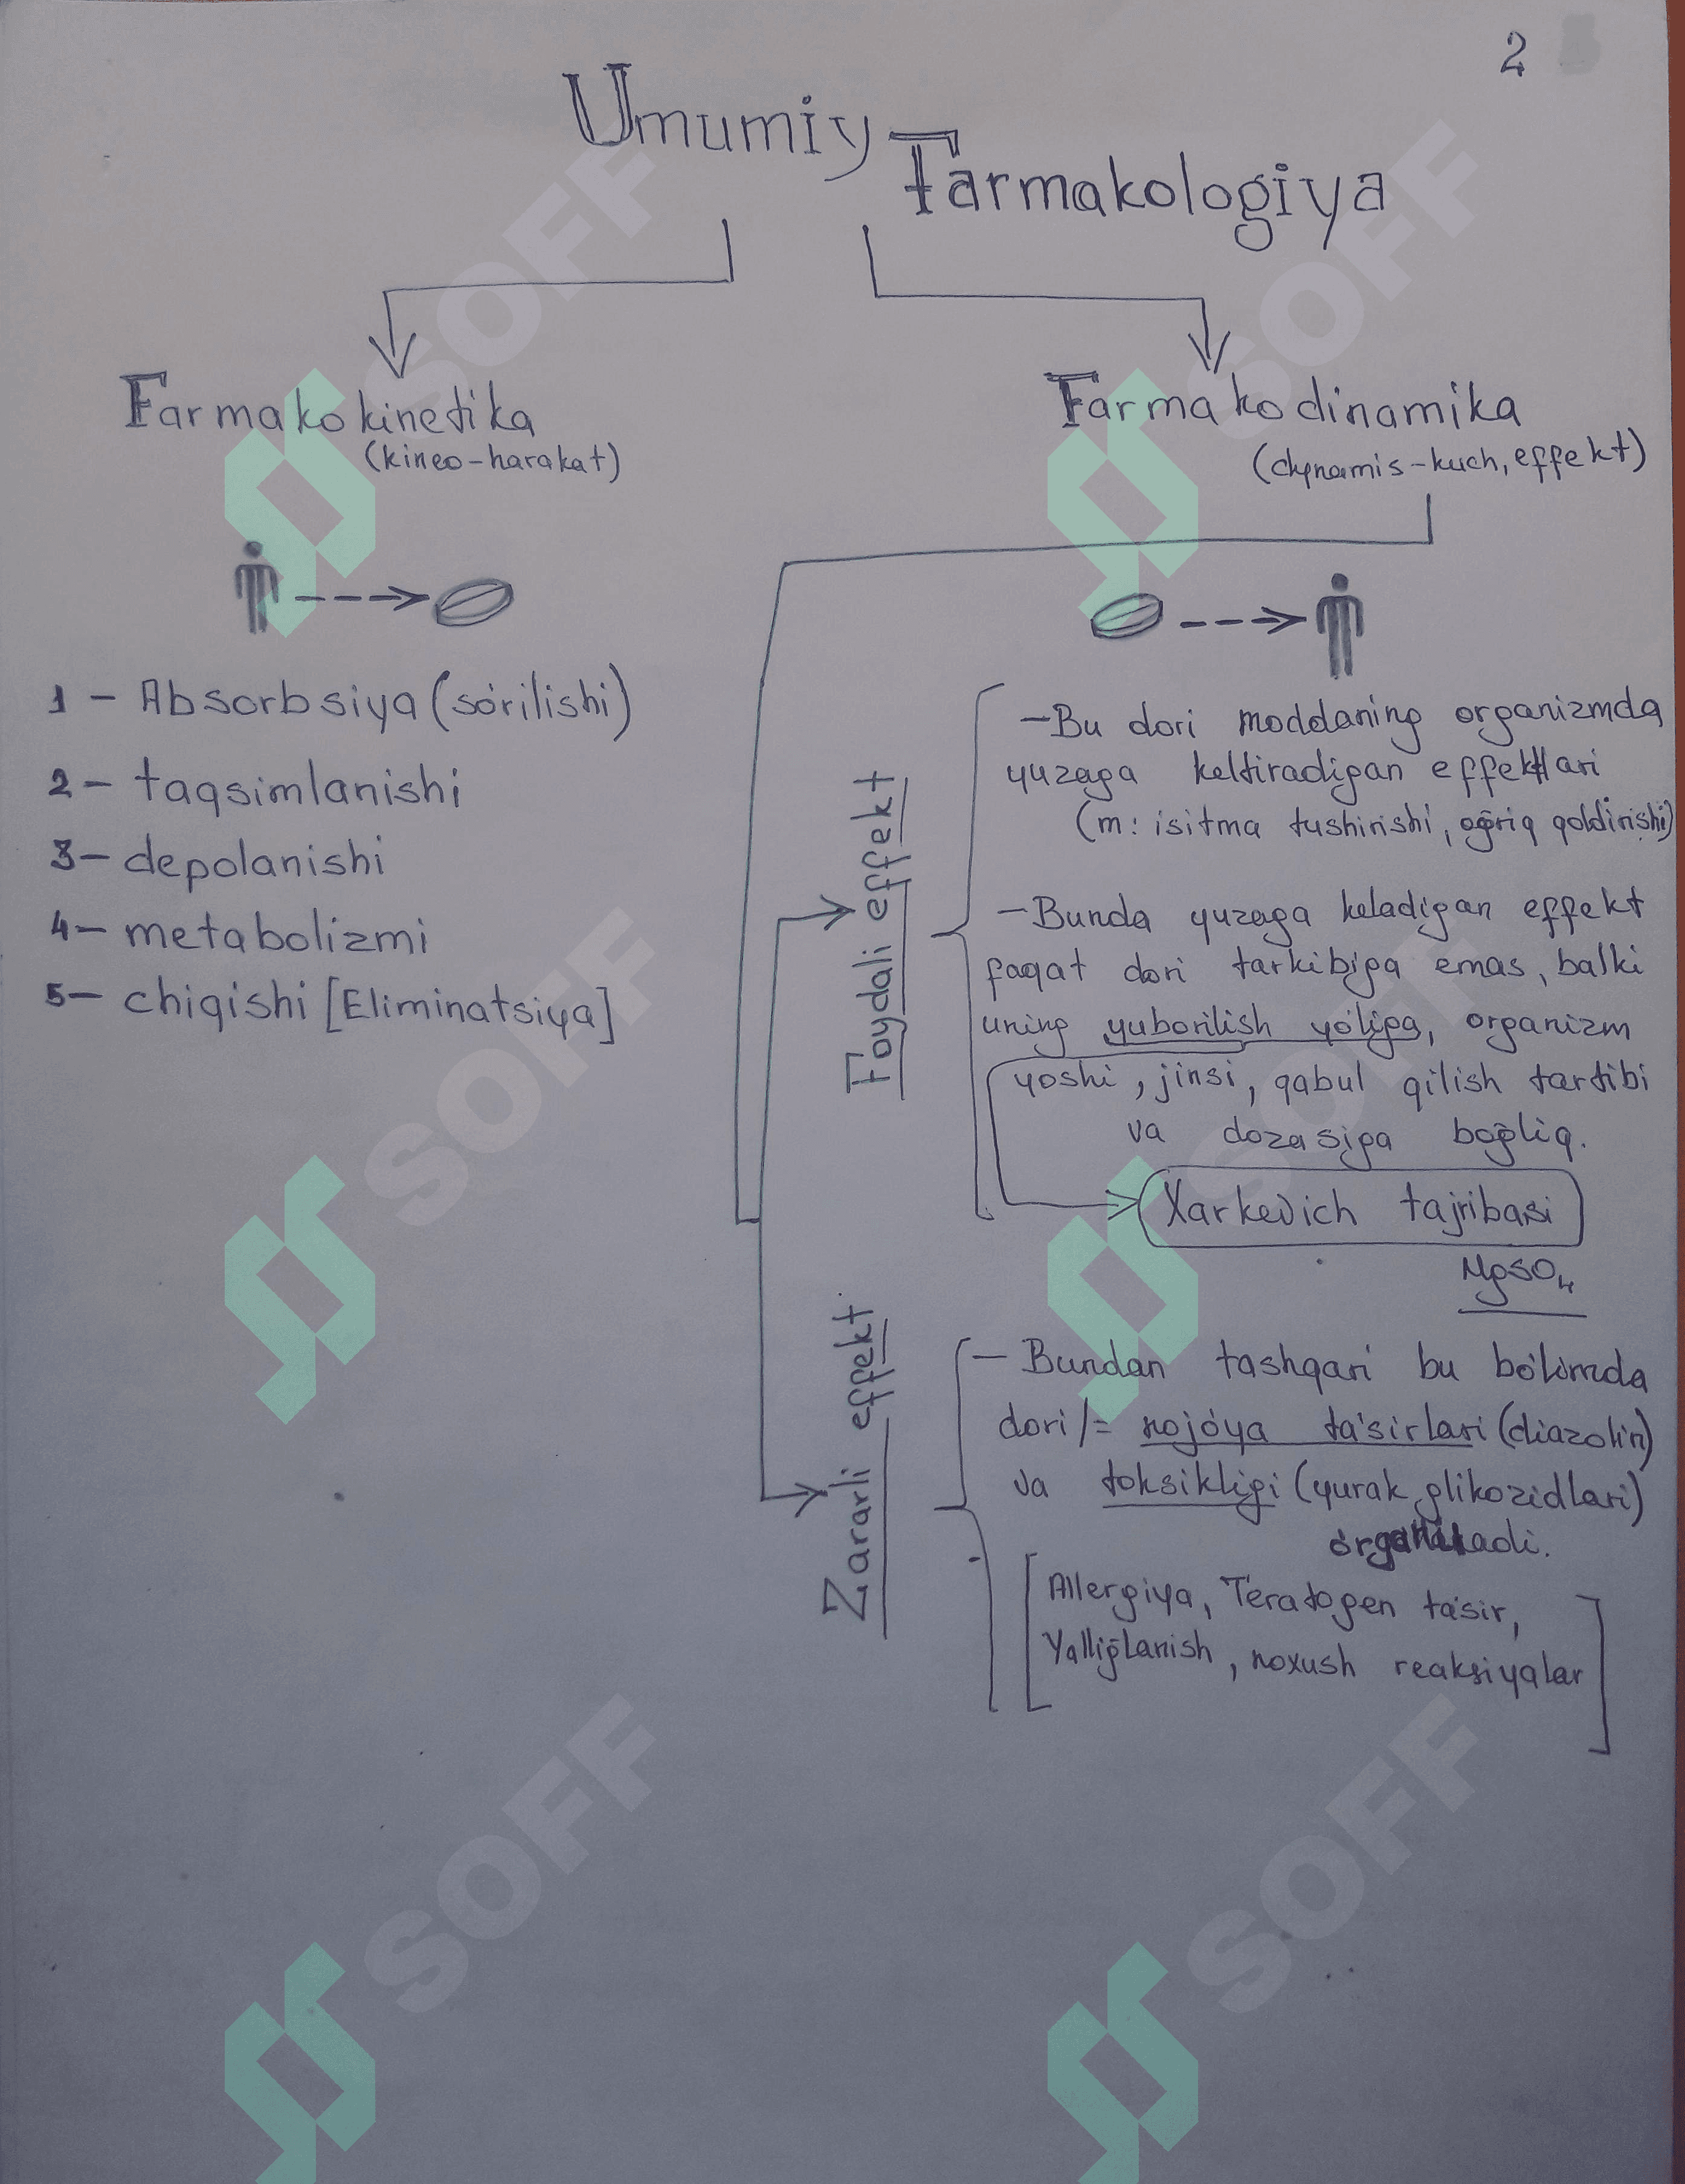 2
Umumiy
Farmakologiya
Farmakokinetika
(kineo-harakat)
1 - Absorbsiya (so'rilishi)
2 - taqsimlanishi
3 - depolanishi
4 - metabolizmi
5 - chiqishi [Eliminatsiya]
Farmakodinamika
(dynamis-kuch, effekt)
Foydali effekt
- Bu dori moddaning organizmda
yuzaga keltiradigan effektlari
(m: isitma tushirishi, og'riq qoldirishi)
- Bunda yuzaga keladigan effekt
faqat dori tarkibiga emas, balki
uning yuborilish yo'liga, organizm
yoshi, jinsi, qabul qilish tartibi
va dozasiga bog'liq.
Xarkevich tajribasi
MgSO4
Zararli effekt
- Bundan tashqari bu bo'limda
dori /= nojo'ya ta'sirlari (diazolin)
va toksikligi (yurak glikozidlari)
o'rganiladi.
[Allergiya, Teratogen ta'sir,
Yallig'lanish, noxush reaksiyalar]
SOFF
SOFF
SOFF
SOFF
SOFF
SOFF